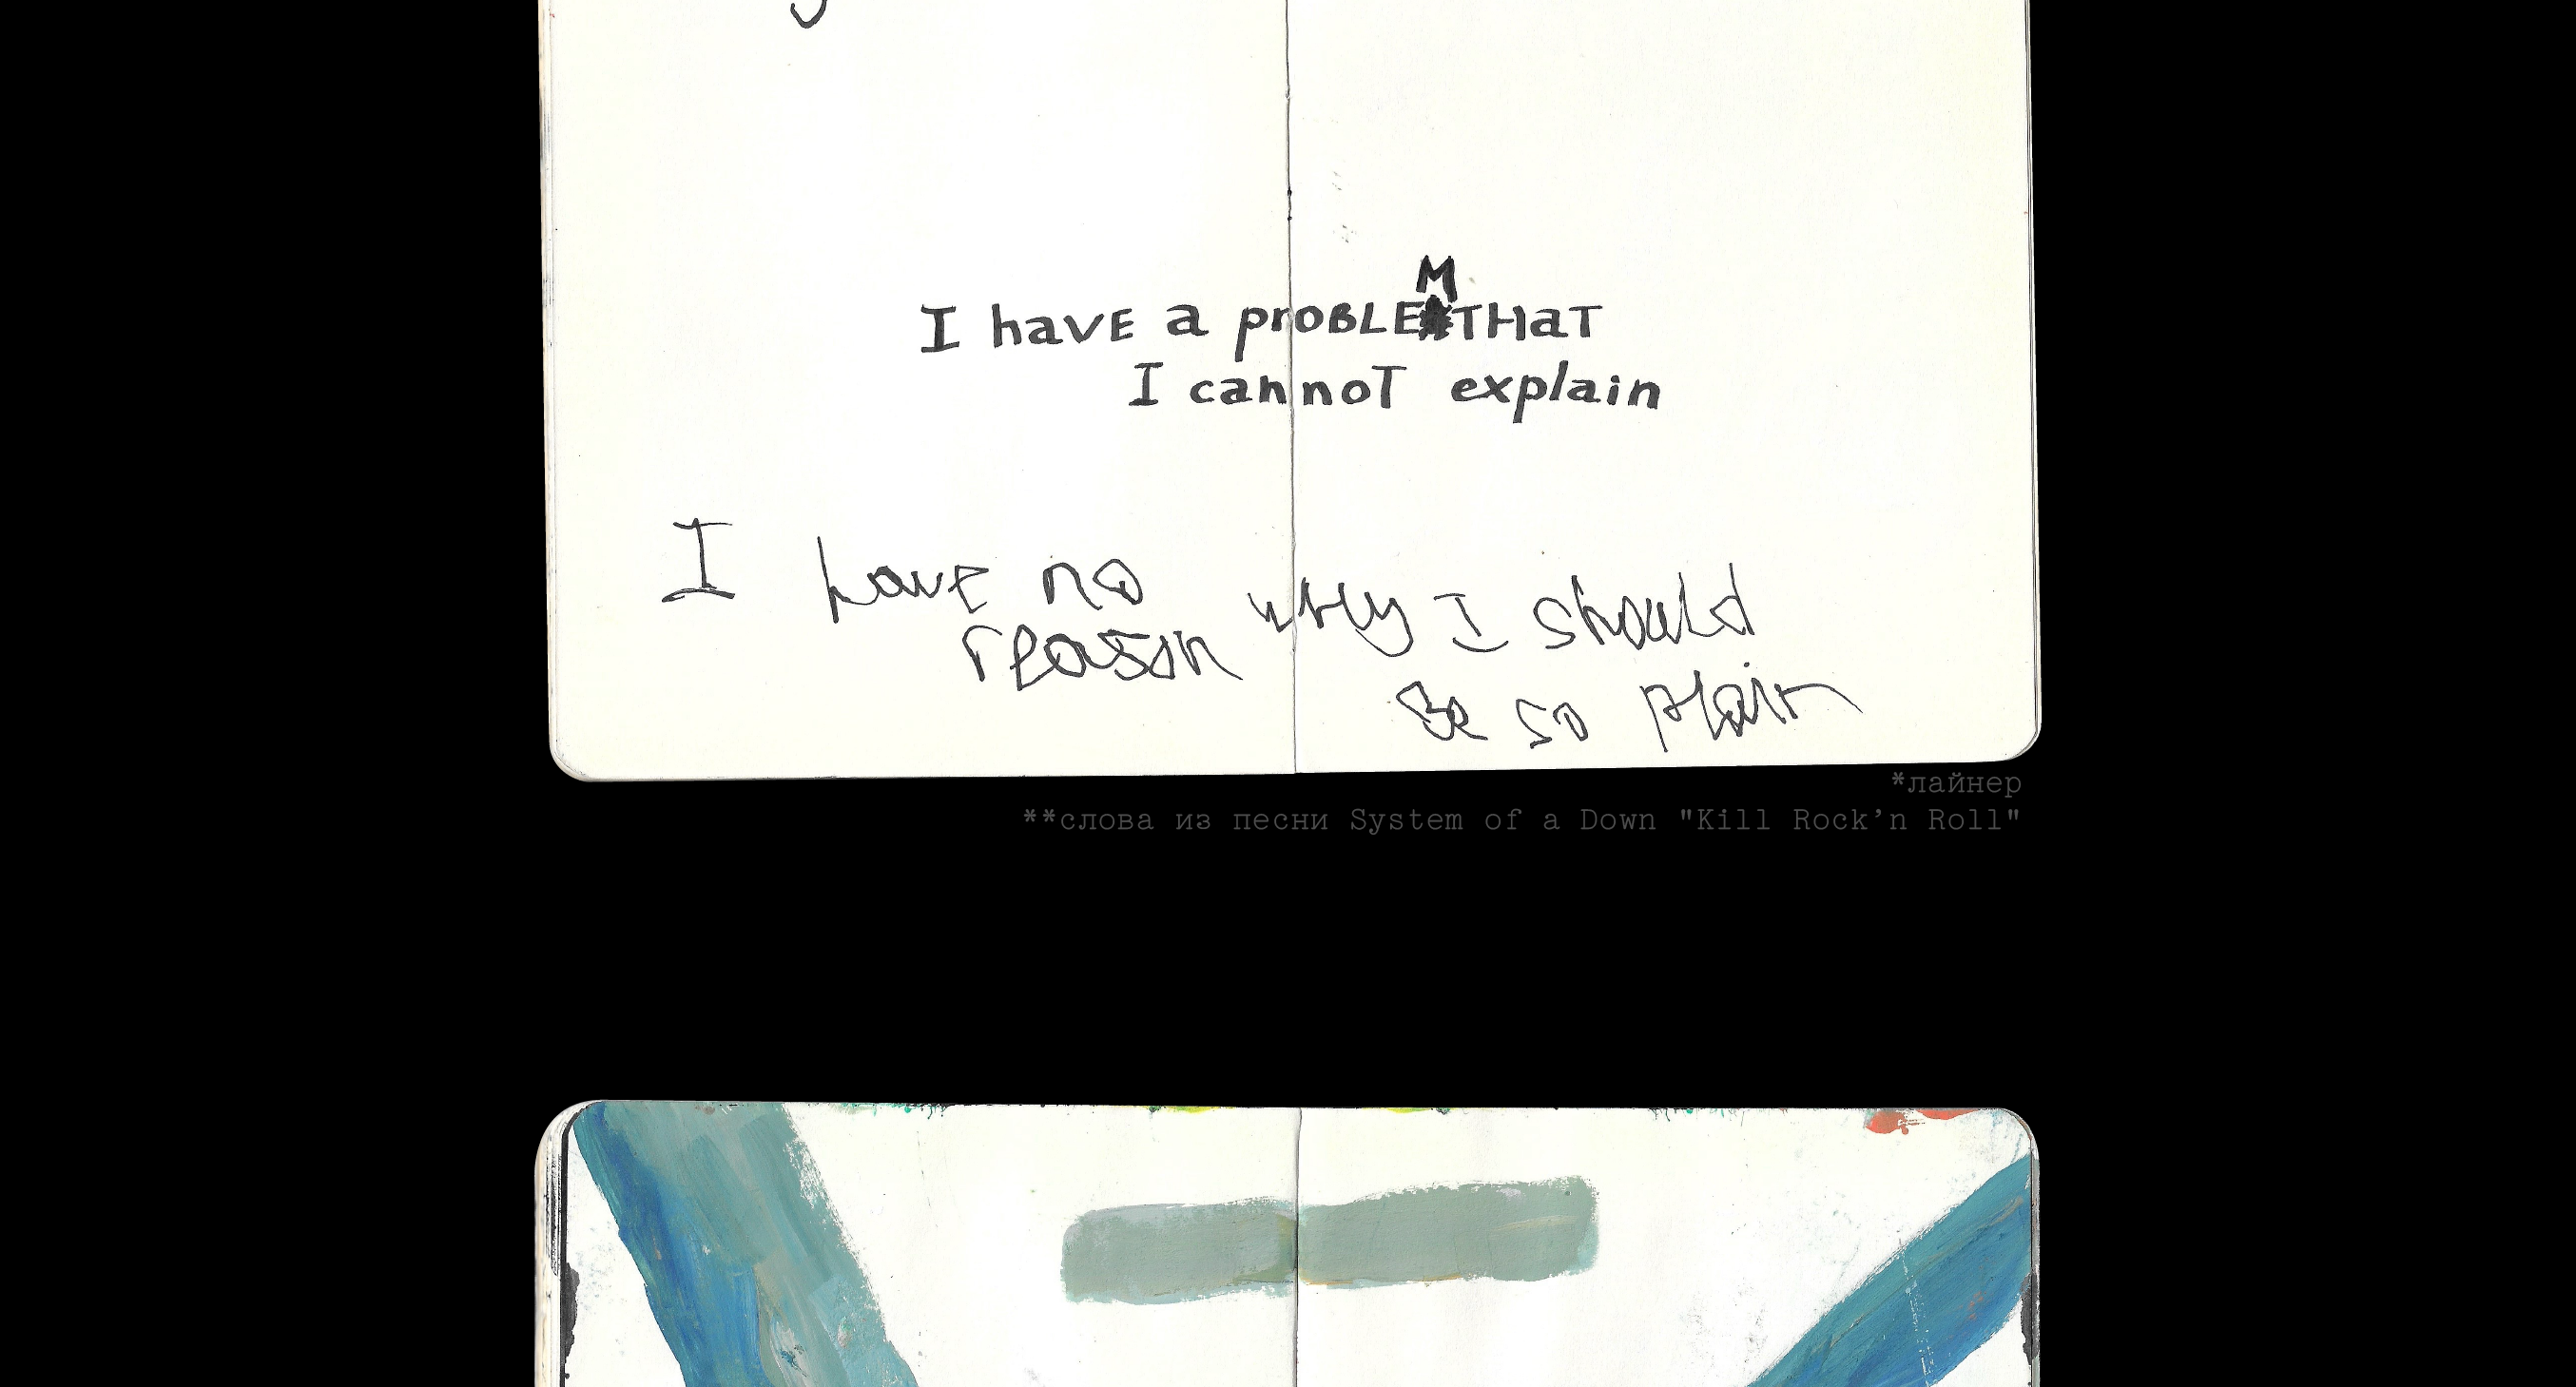 I havE a proBLEM THaT
I cannoT explain
I have no why I should
reason
Be so plain
*лайнер
**слова из песни System of a Down "Kill Rock’n Roll"